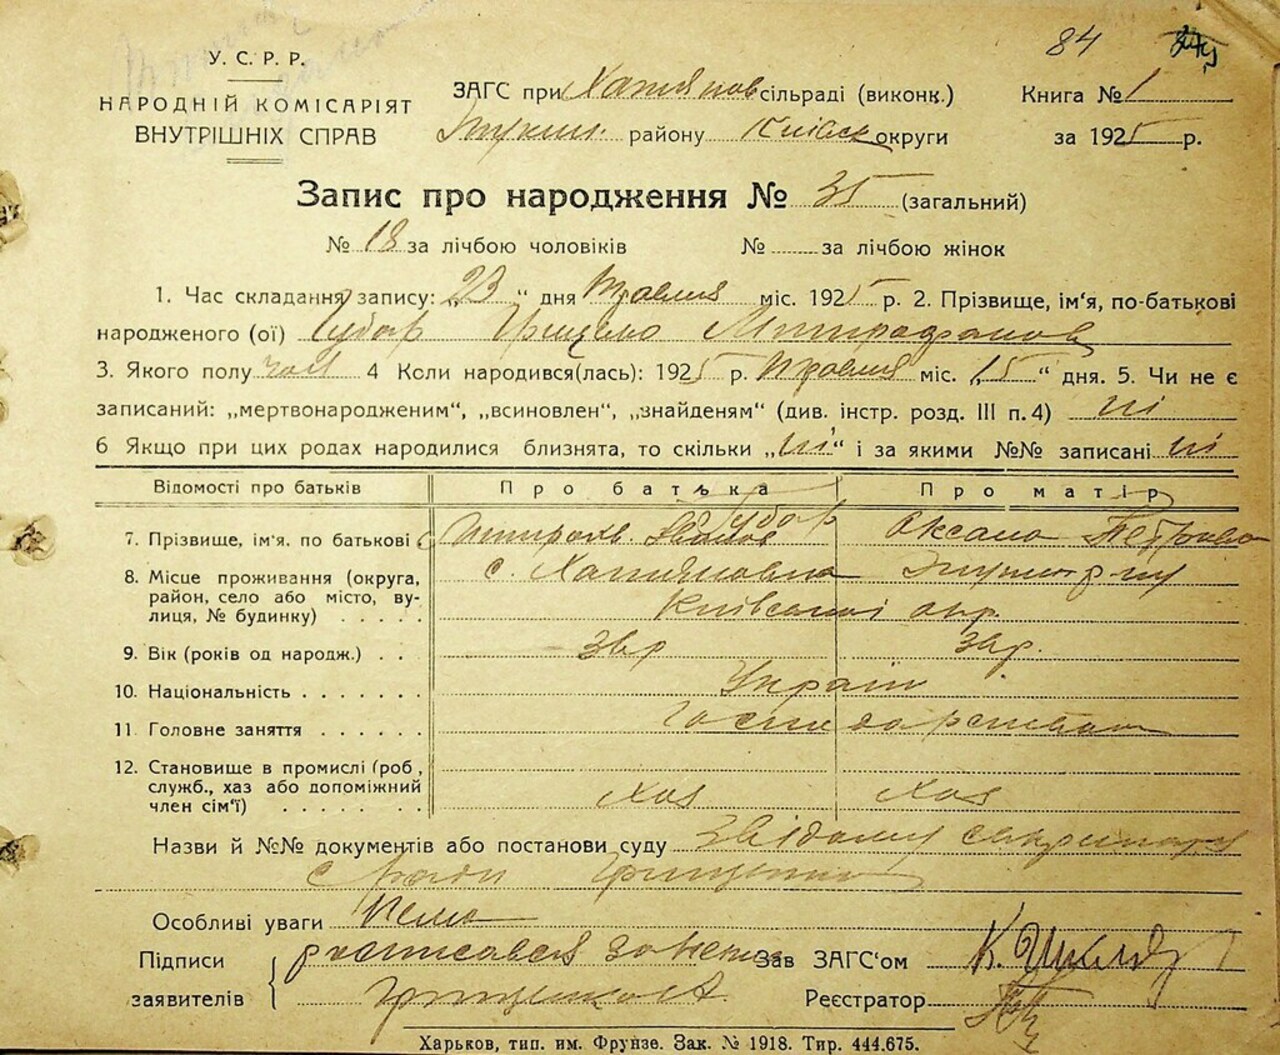 84
У. С. Р. Р.
НАРОДНІЙ КОМІСАРІЯТ
ВНУТРІШНІХ СПРАВ
ЗАГС при сільраді (виконк.)
району Київск округи
Книга № 1
за 1925 р.
Запис про народження № 35 (загальний)
№ 18 за лічбою чоловіків № за лічбою жінок
1. Час складання запису: „23“ дня Травня міс. 1925 р. 2. Прізвище, ім'я, по-батькові
народженого (ої) Губар Митрофанов
3. Якого полу чол 4 Коли народився(лась): 1925 р. Травня міс. „15“ дня. 5. Чи не є
записаний: „мертвонародженим“, „всиновлен“, „знайденям“ (див. інстр. розд. III п. 4) ні
6 Якщо при цих родах народилися близнята, то скільки „ні“ і за якими №№ записані ні
Відомості про батьків Про батька Про матір
7. Прізвище, ім'я. по батькові Губар Оксана Петрова
8. Місце проживання (округа,
район, село або місто, ву-
лиця, № будинку)
с. Київської окр.
9. Вік (років од народж.)
10. Національність Україн
11. Головне заняття Господарство
12. Становище в промислі (роб,
служб., хаз або допоміжний
член сім'ї) Хаз Хаз
Назви й №№ документів або постанови суду секритаря
с Ради Грищенка
Особливі уваги Нема
Підписи
заявителів
росписався за
Грищенко
Зав ЗАГС'ом
Реєстратор
Харьков, тип. им. Фрунзе. Зак. № 1918. Тир. 444.675.